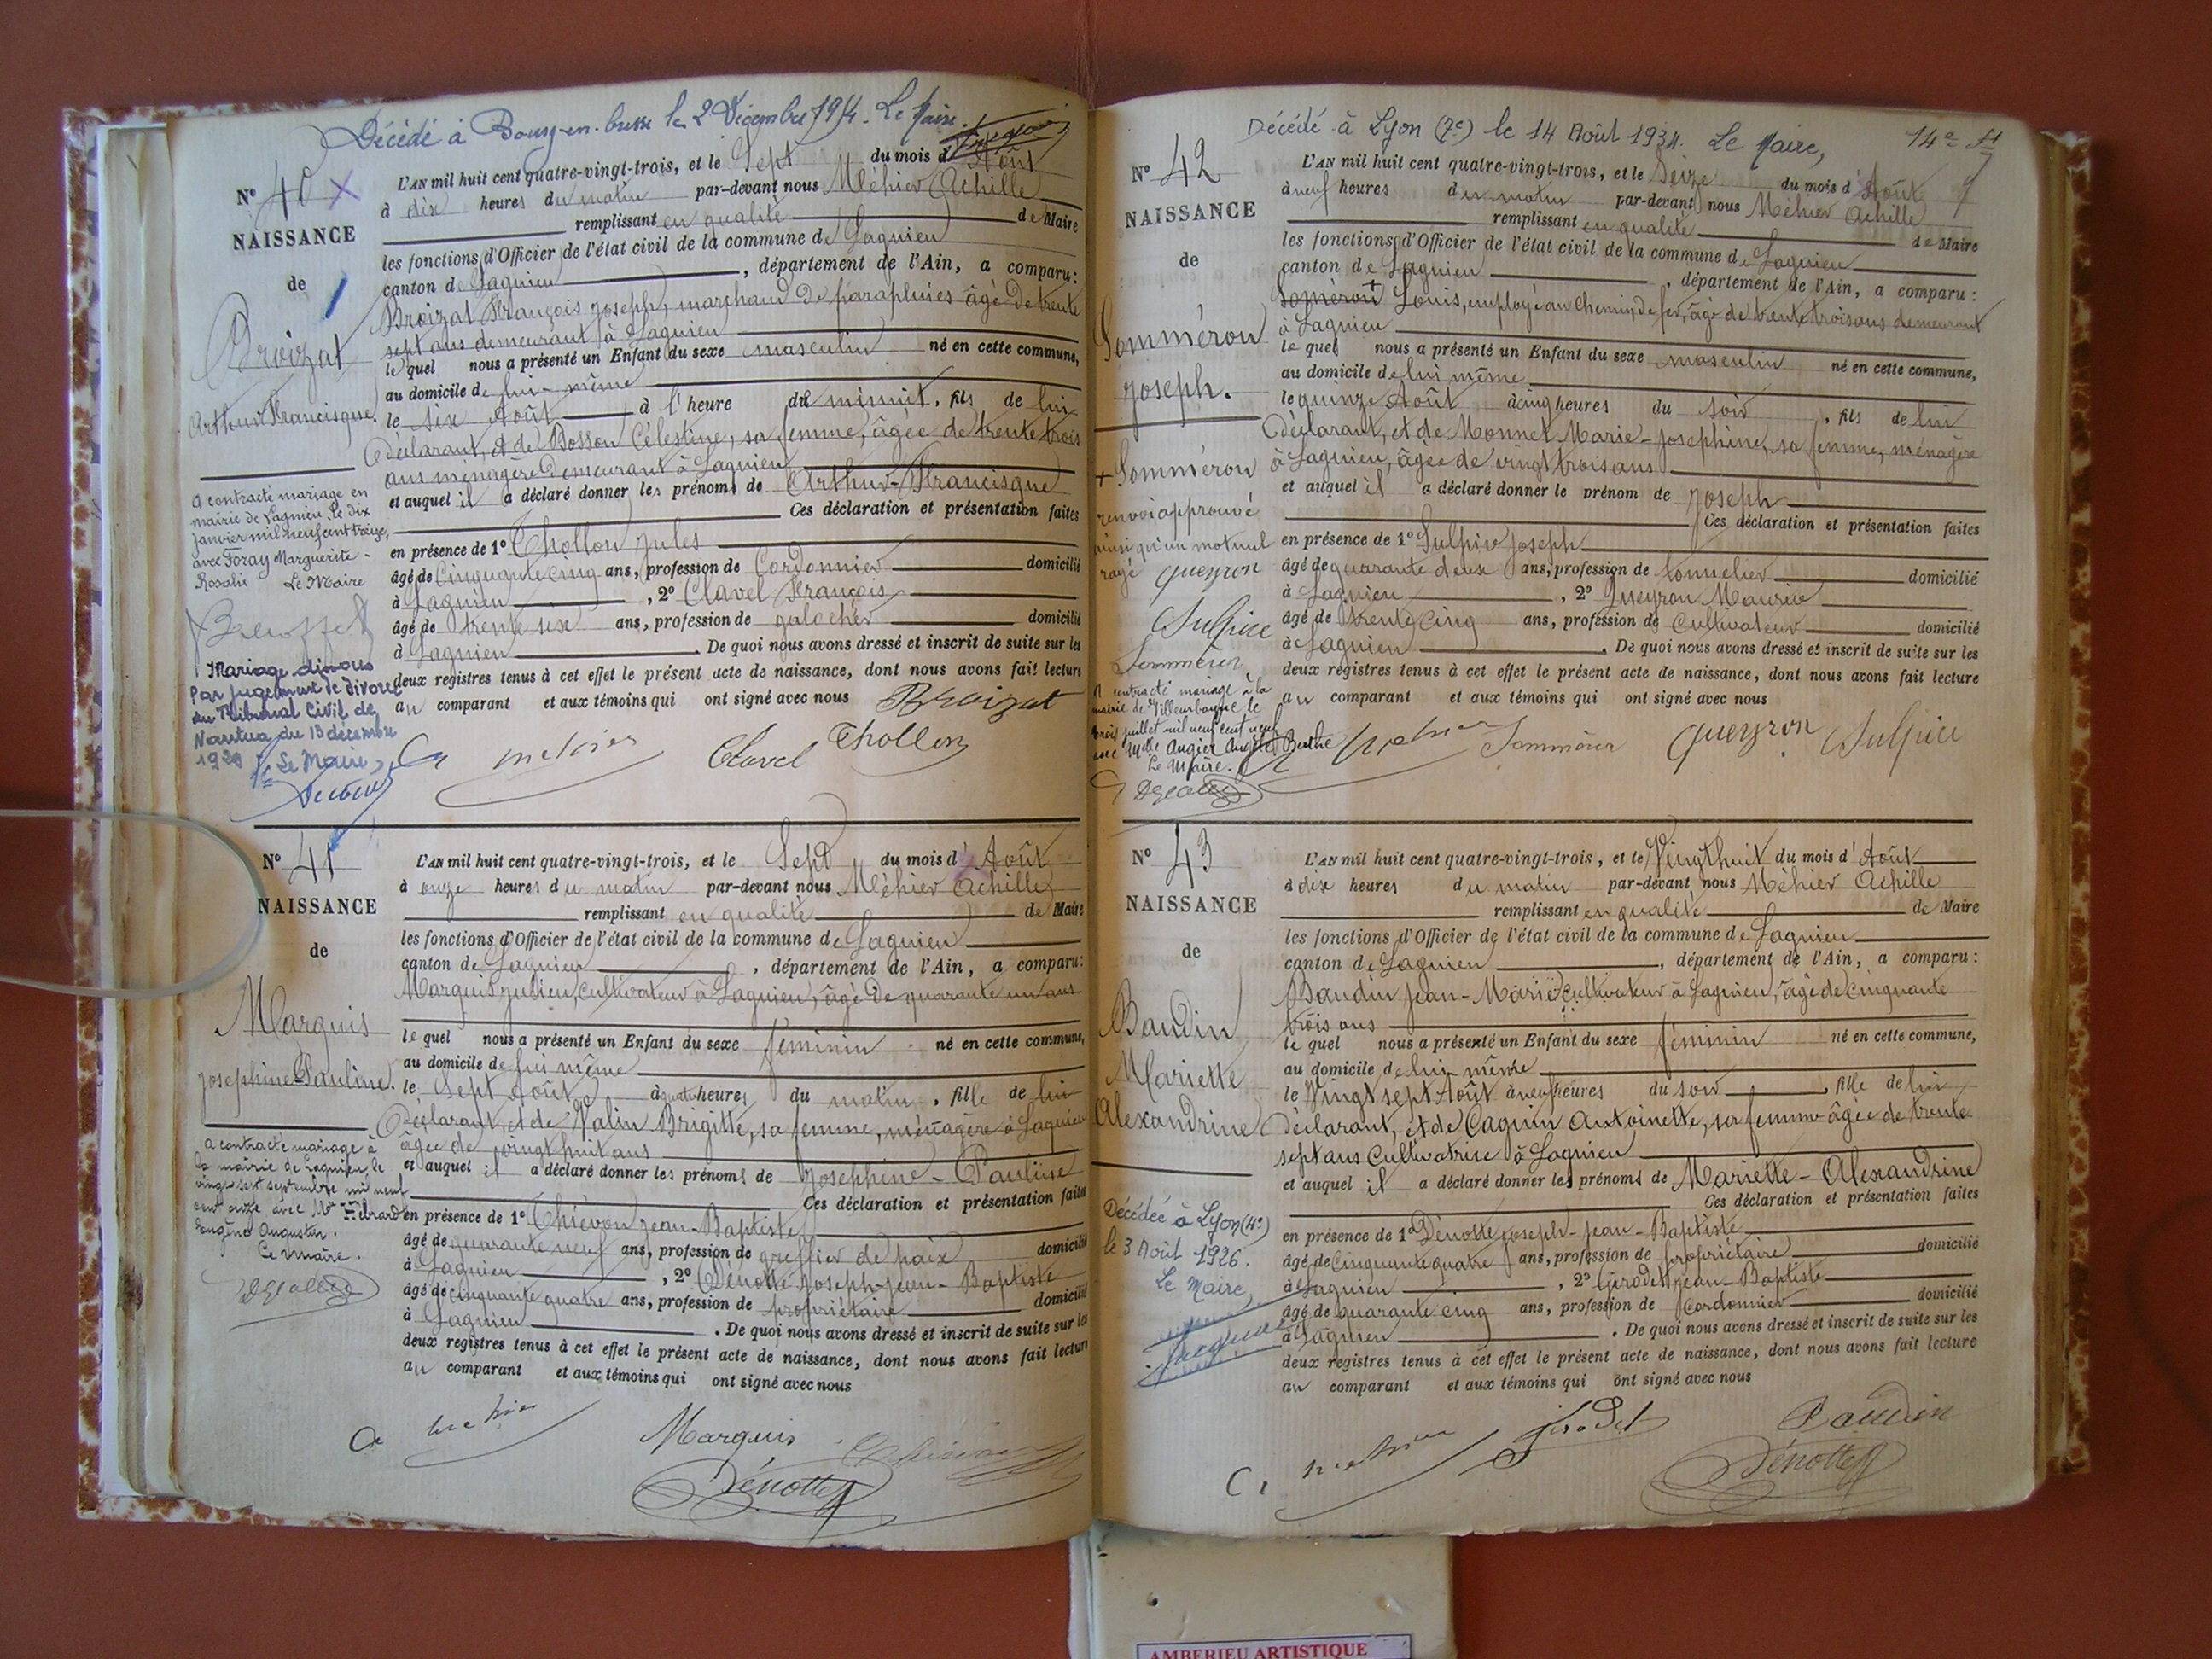 Décédé à Bourg-en-bresse le 2 Décembre 19 Le Maire.
N° 40 X
NAISSANCE
de
Broizat
Arthur Francisque.
L'AN mil huit cent quatre-vingt-trois, et le Sept du mois d'Août
à dix heures du matin par-devant nous Méhier Achille
remplissant en qualité de Maire
les fonctions d'Officier de l'état civil de la commune de Lagnieu
canton de Lagnieu, département de l'Ain, a comparu:
Broizat François Joseph, marchand de parapluies âgé de trente
sept ans demeurant à Lagnieu
le quel nous a présenté un Enfant du sexe masculin né en cette commune,
au domicile de lui-même
le six Août à l'heure de minuit, fils de lui
déclarant, et de Bosson Célestine, sa femme, âgée de trente trois
ans ménagère demeurant à Lagnieu
et auquel il a déclaré donner les prénoms de Arthur-Francisque
Ces déclaration et présentation faites
en présence de 1° Thollon Jules
âgé de Cinquante cinq ans, profession de Cordonnier domicilié
à Lagnieu, 2° Clavel François
âgé de trente six ans, profession de galocher domicilié
à Lagnieu. De quoi nous avons dressé et inscrit de suite sur les
deux registres tenus à cet effet le présent acte de naissance, dont nous avons fait lecture
au comparant et aux témoins qui ont signé avec nous Broizat
A Mehier Clavel Thollon
A contracté mariage en
mairie de Lagnieu le dix
janvier mil neuf cent treize,
avec Foray Marguerite-
Rosalie Le Maire
Mariage dissous
par jugement de divorce
du Tribunal Civil de
Nantua du 13 décembre
1920 Le Maire,
N° 41
NAISSANCE
de
Marquis
Josephine Pauline.
L'AN mil huit cent quatre-vingt-trois, et le Sept du mois d'Août
à onze heures du matin par-devant nous Méhier Achille
remplissant en qualité de Maire
les fonctions d'Officier de l'état civil de la commune de Lagnieu
canton de Lagnieu, département de l'Ain, a comparu:
Marquis Julien, Cultivateur à Lagnieu, âgé de quarante un ans
le quel nous a présenté un Enfant du sexe féminin né en cette commune,
au domicile de lui même
le Sept Août à quatre heures du matin, fille de lui
déclarant, et de Valin Brigitte, sa femme, ménagère à Lagnieu
âgée de vingt huit ans
et auquel il a déclaré donner les prénoms de Josephine-Pauline
Ces déclaration et présentation faites
en présence de 1° Chiévon Jean-Baptiste
âgé de quarante neuf ans, profession de greffier de paix domicilié
à Lagnieu, 2° Dénotte Joseph-Jean-Baptiste
âgé de cinquante quatre ans, profession de propriétaire domicilié
à Lagnieu. De quoi nous avons dressé et inscrit de suite sur les
deux registres tenus à cet effet le présent acte de naissance, dont nous avons fait lecture
au comparant et aux témoins qui ont signé avec nous
A Mehier Marquis
Dénotte
a contracté mariage à
la mairie de Lagnieu le
vingt sept septembre mil neuf
cent onze avec Mr Hébrard
Eugène Augustin.
Le Maire.
Décédé à Lyon (7e) le 14 Août 1934. Le Maire,
N° 42
NAISSANCE
de
Somméron
Joseph.
L'AN mil huit cent quatre-vingt-trois, et le Seize du mois d'Août
à neuf heures du matin par-devant nous Méhier Achille
remplissant en qualité de Maire
les fonctions d'Officier de l'état civil de la commune de Lagnieu
canton de Lagnieu, département de l'Ain, a comparu:
Soméron + Louis, employé au Chemin de fer, âgé de trente trois ans demeurant
à Lagnieu
le quel nous a présenté un Enfant du sexe masculin né en cette commune,
au domicile de lui même
le quinze Août à cinq heures du soir, fils de lui
déclarant, et de Monnet Marie-Josephine, sa femme, ménagère
à Lagnieu, âgée de vingt trois ans
et auquel il a déclaré donner le prénom de Joseph
Ces déclaration et présentation faites
en présence de 1° Sulpice Joseph
âgé de quarante deux ans, profession de tonnelier domicilié
à Lagnieu, 2° Queyron Maurice
âgé de trente Cinq ans, profession de Cultivateur domicilié
à Lagnieu. De quoi nous avons dressé et inscrit de suite sur les
deux registres tenus à cet effet le présent acte de naissance, dont nous avons fait lecture
au comparant et aux témoins qui ont signé avec nous
Queyron Sulpice
+ Somméron
renvoi approuvé
ainsi qu'un mot nul
rayé Queyron
Sulpice
A contracté mariage à la
mairie de Villeurbanne le
trois juillet mil neuf cent neuf
avec Melle Augier Berthe
Le Maire.
N° 43
NAISSANCE
de
Baudin
Mariette
Alexandrine
L'AN mil huit cent quatre-vingt-trois, et le Vingt huit du mois d'Août
à dix heures du matin par-devant nous Méhier Achille
remplissant en qualité de Maire
les fonctions d'Officier de l'état civil de la commune de Lagnieu
canton de Lagnieu, département de l'Ain, a comparu:
Baudin Jean-Marie Cultivateur à Lagnieu, âgé de Cinquante
trois ans
le quel nous a présenté un Enfant du sexe féminin né en cette commune,
au domicile de lui même
le Vingt sept Août à neuf heures du soir, fille de lui
déclarant, et de Caquin Antoinette, sa femme âgée de trente
sept ans Cultivatrice à Lagnieu
et auquel il a déclaré donner les prénoms de Mariette-Alexandrine
Ces déclaration et présentation faites
en présence de 1° Dénotte Joseph-Jean-Baptiste
âgé de Cinquante quatre ans, profession de propriétaire domicilié
à Lagnieu, 2° Girodet Jean-Baptiste
âgé de quarante cinq ans, profession de Cordonnier domicilié
à Lagnieu. De quoi nous avons dressé et inscrit de suite sur les
deux registres tenus à cet effet le présent acte de naissance, dont nous avons fait lecture
au comparant et aux témoins qui ont signé avec nous
Girodet Baudin
Dénotte
Décédée à Lyon (4e)
le 3 Août 1926.
Le Maire,
AMBERIEU ARTISTIQUE